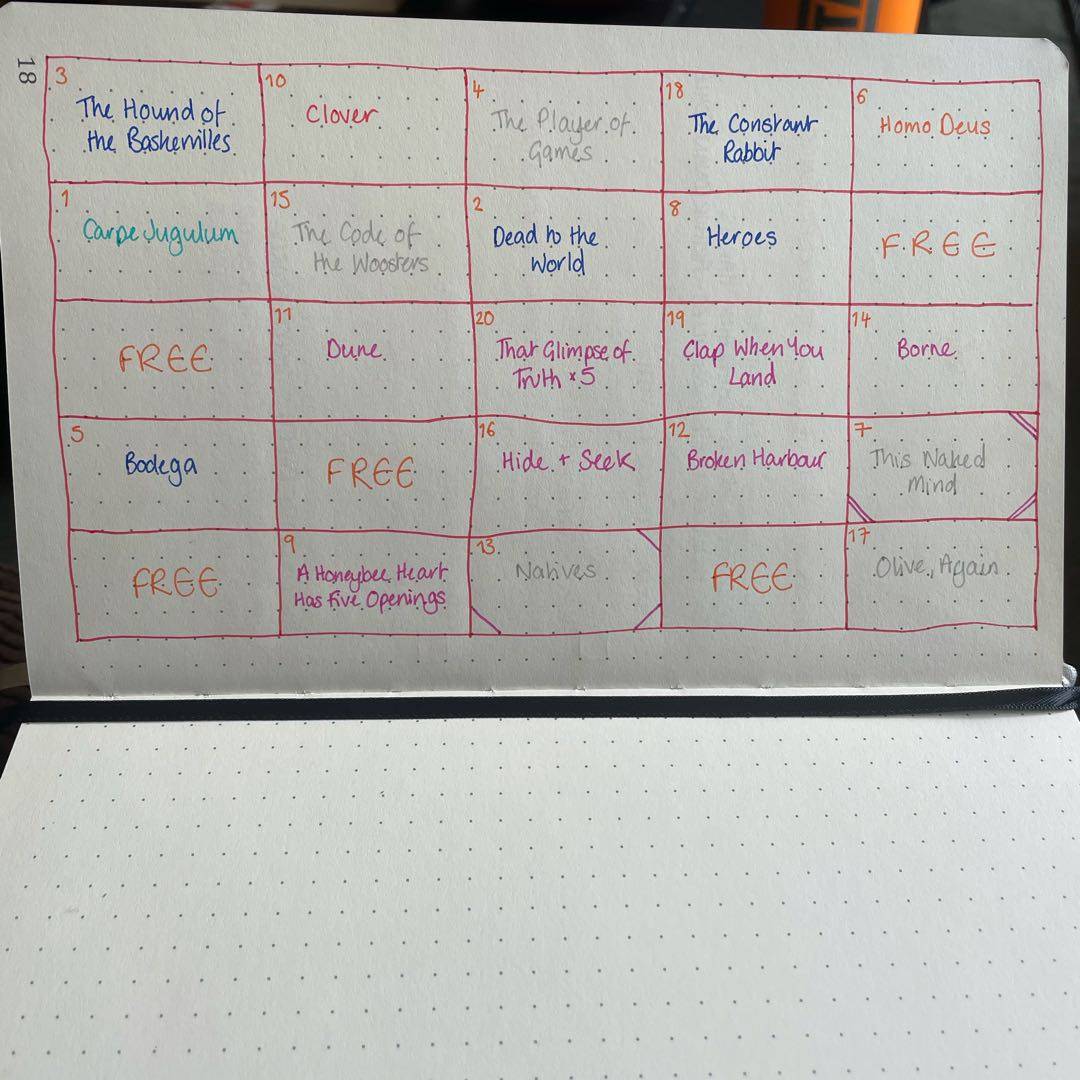 18
3
The Hound of
the Baskervilles
10
Clover
4
The Player of
Games
18
The Constant
Rabbit
6
Homo Deus
1
Carpe Jugulum
15
The Code of
the Woosters
2
Dead to the
World
8
Heroes
FREE
FREE
11
Dune
20
That Glimpse of
Truth x 5
19
Clap When You
Land
14
Borne
5
Bodega
FREE
16
Hide + Seek
12
Broken Harbour
7
This Naked
Mind
FREE
9
A Honeybee Heart
Has Five Openings
13
Natives
FREE
17
Olive, Again